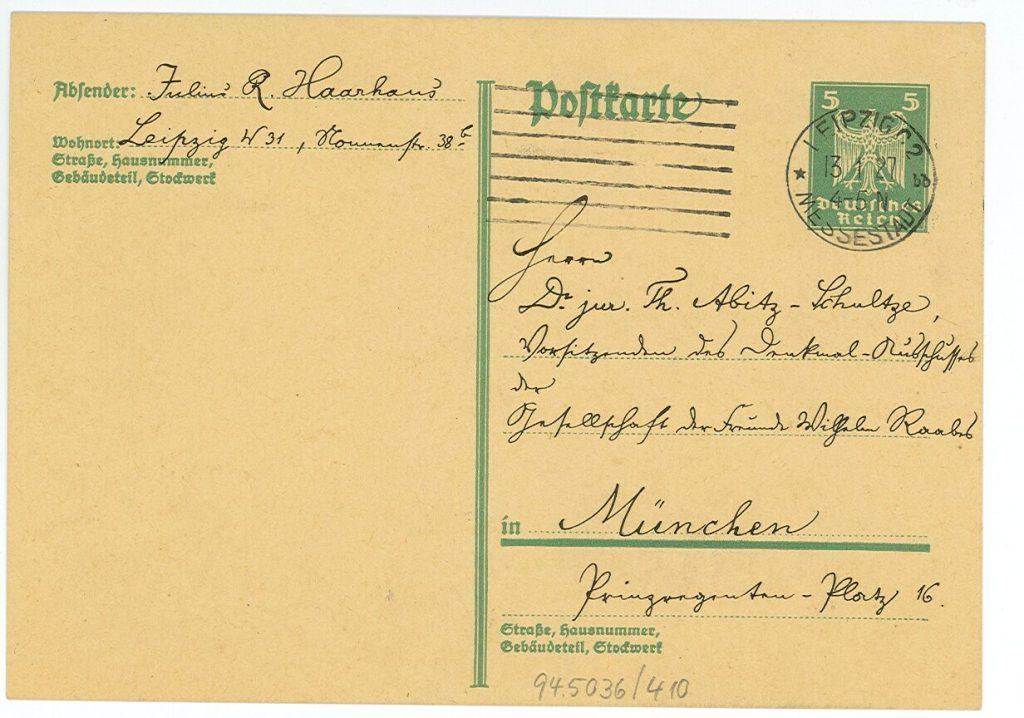 Absender: Julius R. Haarhaus
Wohnort: Leipzig W 31, Nonnenstr. 38b
Straße, Hausnummer,
Gebäudeteil, Stockwerk
Postkarte
5 5
Deutsches
Reich
LEIPZIG C2
13.1.27
4-5 N
* MESSESTADT
Herrn
Dr. jur. Th. Abitz-Schultze,
Vorsitzenden des Denkmal-Ausschusses
der
Gesellschaft der Freunde Wilhelm Raabes
in München
Prinzregenten-Platz 16.
Straße, Hausnummer,
Gebäudeteil, Stockwerk
94.5036/410